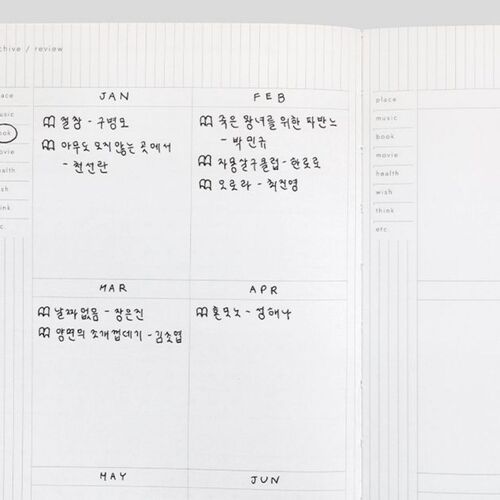 chive / review
lace
usic
ook
ovie
ealth
ish
ink
c
JAN
절창 - 구병모
아무도 오지 않는 곳에서
- 천선란
FEB
죽은 왕녀를 위한 파반느
- 박민규
자몽살구클럽 - 한로로
오로라 - 최진영
MAR
날짜없음 - 장은진
양면의 조개껍데기 - 김초엽
APR
혼모노 - 성해나
MAY
JUN
place
music
book
movie
health
wish
think
etc